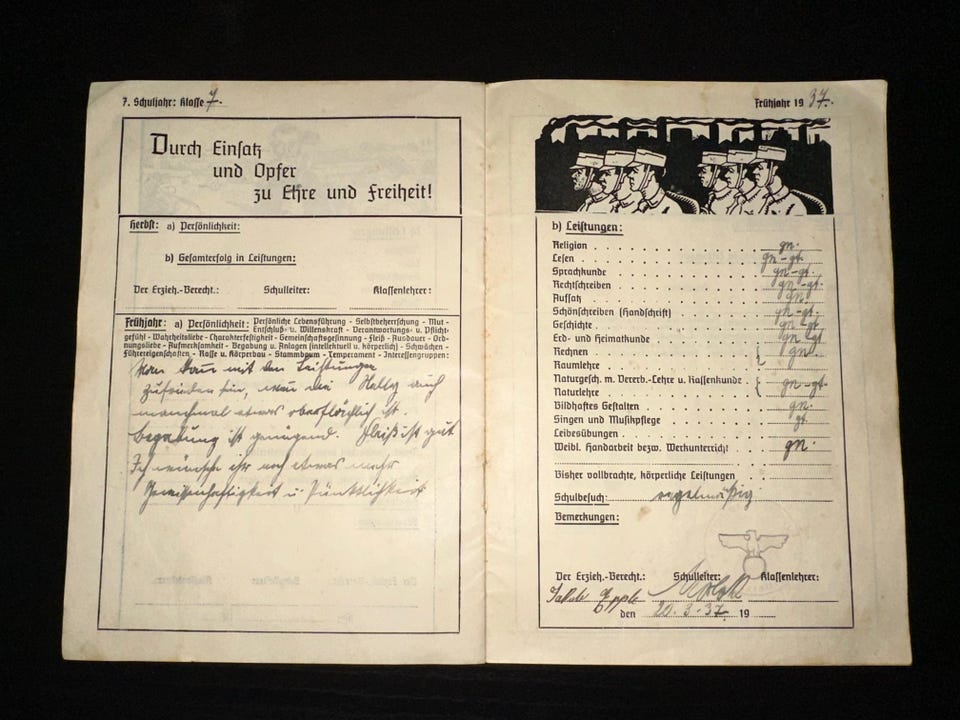 7. Schuljahr: Klasse 7.
Durch Einsatz
und Opfer
zu Ehre und Freiheit!
Herbst: a) Persönlichkeit:
b) Gesamterfolg in Leistungen:
Der Erzieh.-Berecht.: Schulleiter: Klassenlehrer:
Frühjahr: a) Persönlichkeit: Persönliche Lebensführung - Selbstbeherrschung - Mut -
Entschluß- u. Willenskraft - Verantwortungs- u. Pflicht-
gefühl - Wahrheitsliebe - Charakterfestigkeit - Gemeinschaftsgesinnung - Fleiß - Ausdauer - Ord-
nungsliebe - Aufmerksamkeit - Begabung u. Anlagen (intellektuell u. körperlich) - Schwächen -
Führereigenschaften - Rasse u. Körperbau - Stammbaum - Temperament - Interessengruppen:
Man kann mit den Leistungen
zufrieden sein, wenn auch
manchmal etwas oberflächlich ist.
Begabung ist genügend. Fleiß ist gut
Ich wünsche ihr noch etwas mehr
Gewissenhaftigkeit u. Pünktlichkeit
Frühjahr 1937.
b) Leistungen:
Religion gn.
Lesen gn-gt.
Sprachkunde gn-gt.
Rechtschreiben gn-gt.
Aufsatz gn.
Schönschreiben (Handschrift) gn-gt.
Geschichte gn-gt
Erd- und Heimatkunde gn-gt
Rechnen gn.
Raumlehre
Naturgesch. m. Vererb.-Lehre u. Rassenkunde gn-gt.
Naturlehre
Bildhaftes Gestalten gn.
Singen und Musikpflege gt.
Leibesübungen
Weibl. Handarbeit bezw. Werkunterricht gn.
Bisher vollbrachte, körperliche Leistungen
Schulbesuch: regelmäßig
Bemerkungen:
Der Erzieh.-Berecht.: Schulleiter: Klassenlehrer:
Epple
den 20.3.37. 19